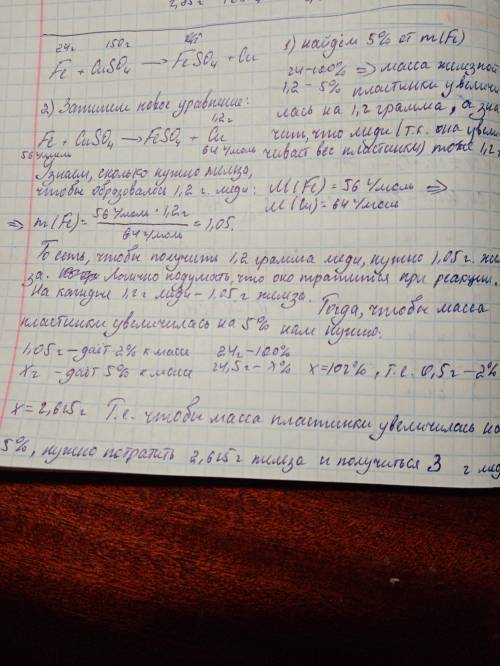 24г 150г
Fe + CuSO4 → FeSO4 + Cu
1) найдём 5% от m(Fe)
24-100% ⇒ масса железной
1,2 - 5% пластинки увеличи
лась на 1,2 грамма, а зна
чит, что меди (т.к. она увели
чивает вес пластинки) тоже 1,2
2) Запишем новое уравнение:
1,2г
Fe + CuSO4 → FeSO4 + Cu
56 г/моль 64 г/моль
Узнаем, сколько нужно железа,
чтобы образовалось 1,2 г. меди:
M(Fe) = 56 г/моль ⇒
M(Cu) = 64 г/моль
⇒ m(Fe) = 56 г/моль · 1,2г / 64 г/моль = 1,05.
То есть, чтобы получить 1,2 грамма меди, нужно 1,05г. желе
за. Логично подумать, что оно тратится при реакции.
На каждые 1,2 г меди - 1,05 г железа.
Тогда, чтобы масса
пластинки увеличилась на 5% нам нужно:
1,05г - даёт 2% к массе 24г - 100%
xг - даёт 5% к массе 24,5г - x% x = 102%, т.е. 0,5г - 2%
x = 2,625г Т.е. чтобы масса пластинки увеличилась на
5%, нужно потратить 2,625г железа и получиться 3 г мед